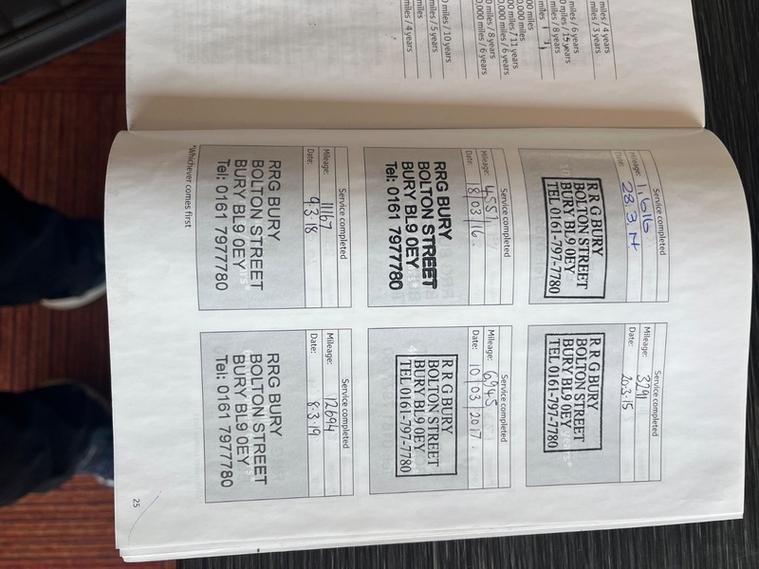 miles / 4 years
miles / 3 years
miles / 6 years
0 miles / 15 years
miles / 8 years
miles
00 miles
0,000 miles
00 miles / 11 years
0,000 miles / 6 years
0 miles / 8 years
0,000 miles / 6 years
0 miles / 10 years
miles / 5 years
miles
miles / 4 years
Service completed
Mileage: 1,616
Date: 28.3.14
R R G BURY
BOLTON STREET
BURY BL9 0EY
TEL 0161-797-7780
Service completed
Mileage: 3291
Date: 20.3.15
R R G BURY
BOLTON STREET
BURY BL9 0EY
TEL 0161-797-7780
Service completed
Mileage: 4557
Date: 8/03/16.
RRG BURY
BOLTON STREET
BURY BL9 0EY
Tel: 0161 7977780
Service completed
Mileage: 6945
Date: 10/03/2017.
R R G BURY
BOLTON STREET
BURY BL9 0EY
TEL 0161-797-7780
Service completed
Mileage: 11167
Date: 9.3.18
RRG BURY
BOLTON STREET
BURY BL9 0EY
Tel: 0161 7977780
Service completed
Mileage: 12694
Date: 8.3.19
RRG BURY
BOLTON STREET
BURY BL9 0EY
Tel: 0161 7977780
*Whichever comes first
25